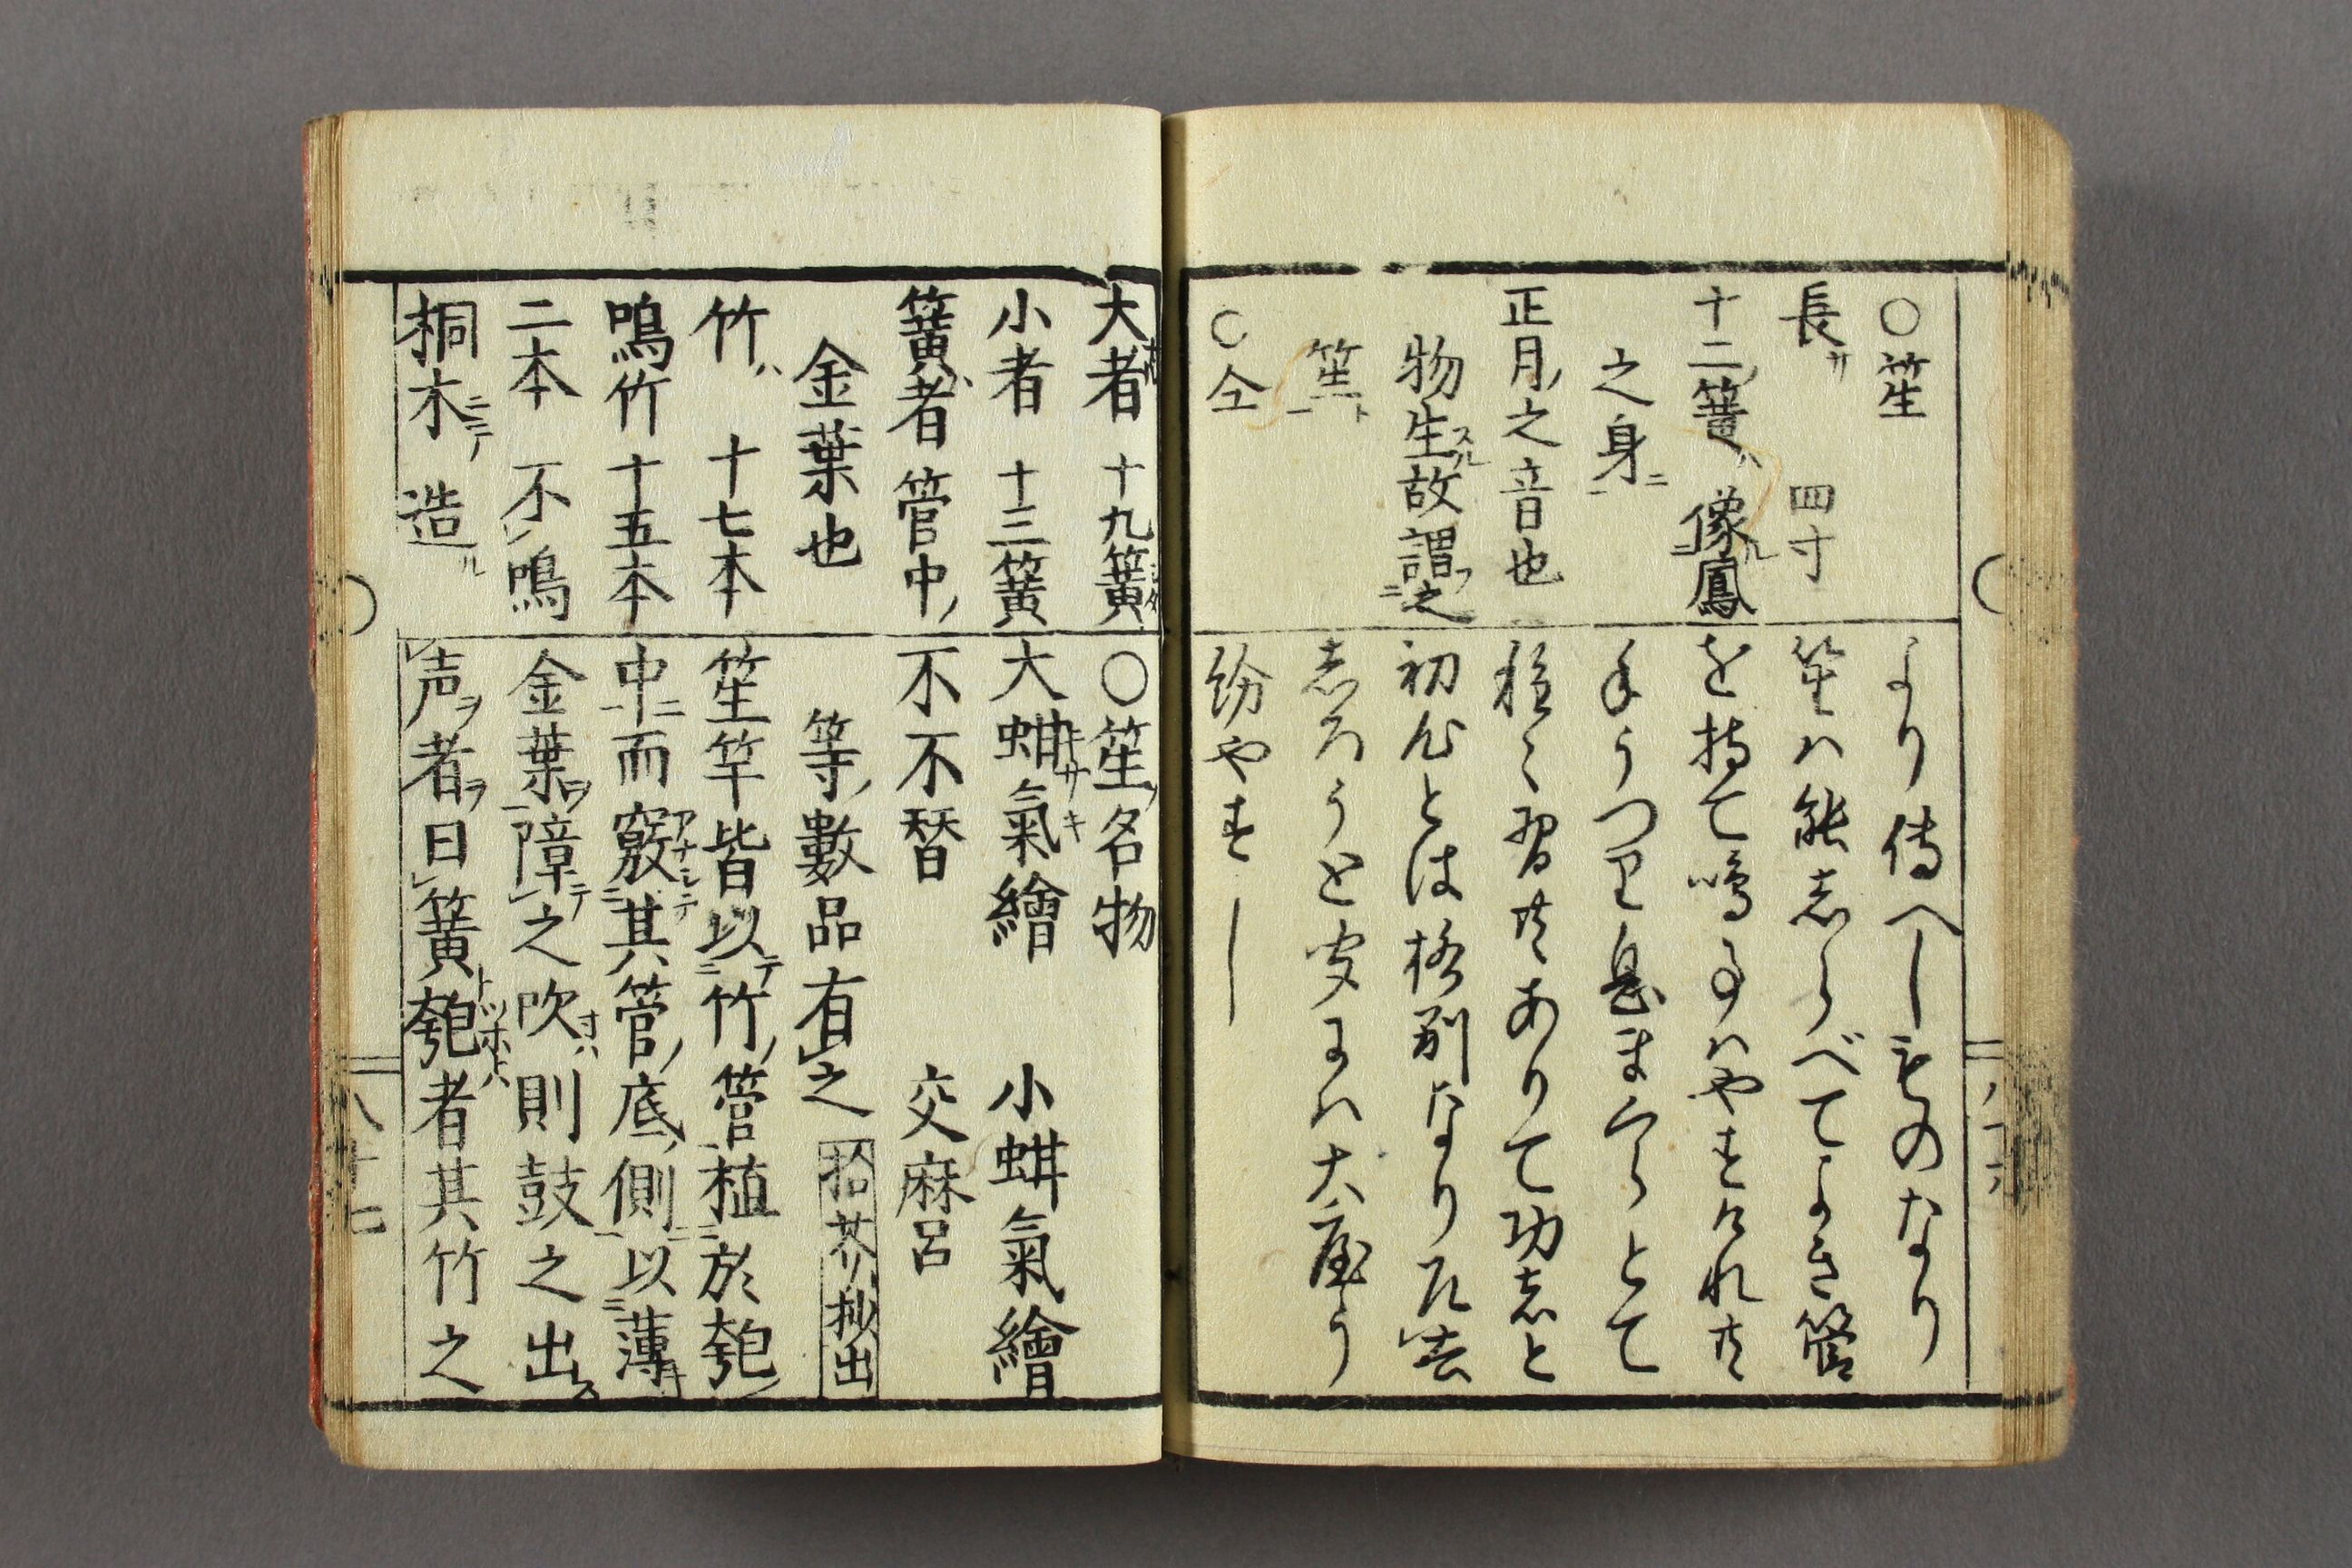 ○笙
長サ 四寸
十二簧ハ像ル鳳
之身ニ
正月ノ之音也
物生スル故謂フ之
笙ト
○仝
より傳へしものなり
笙ハ能しらべてよき管
を持て鳴事ハやすけれ共
手うつり息まくらとて
種々習共ありて功者と
初心とは格別なり
しろうと
紛やすし
八十六
大者 十九簧
小者 十三簧
簧者ハ管中ノ
金葉也
竹ハ 十七本
鳴竹十五本
二本 不鳴
桐木ニテ造ル
○笙ノ名物
大蚶氣繪 小蚶氣繪
不不替 交麻呂
等ノ數品有之 拾芥抄出
笙竽皆以テ竹ノ管植於匏ノ
中ニ而竅アナシテ其管ノ底ノ側ニ以薄キ
金葉ヲ障テ之吹ケハ則鼓之出ス
声ヲ者ヲ曰簧ト匏ツホハ者其竹之
八十七